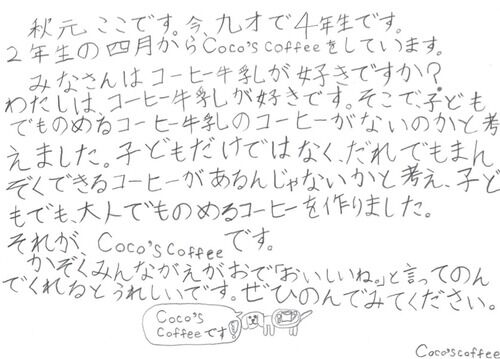 秋元ここです。今、九才で4年生です。
2年生の四月からCoco's coffeeをしています。
みなさんはコーヒー牛乳が好きですか?
わたしは、コーヒー牛乳が好きです。そこで、子ども
でものめるコーヒー牛乳のコーヒーがないのかと考
えました。子どもだけではなく、だれでもまん
ぞくできるコーヒーがあるんじゃないかと考え、子ど
もでも、大人でものめるコーヒーを作りました。
それが、Coco's coffeeです。
かぞくみんながえがおで「おいしいね。」と言ってのん
でくれるとうれしいです。ぜひのんでみてください。
Coco's
coffeeです
Coco's coffee